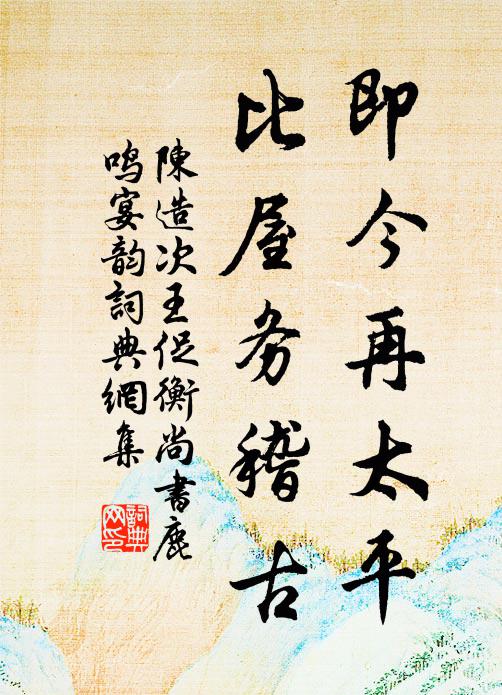 即今再太平
比屋务稽古
陳造次王促衡尚書鹿
鸣宴韵詞典網集
詞典
网印